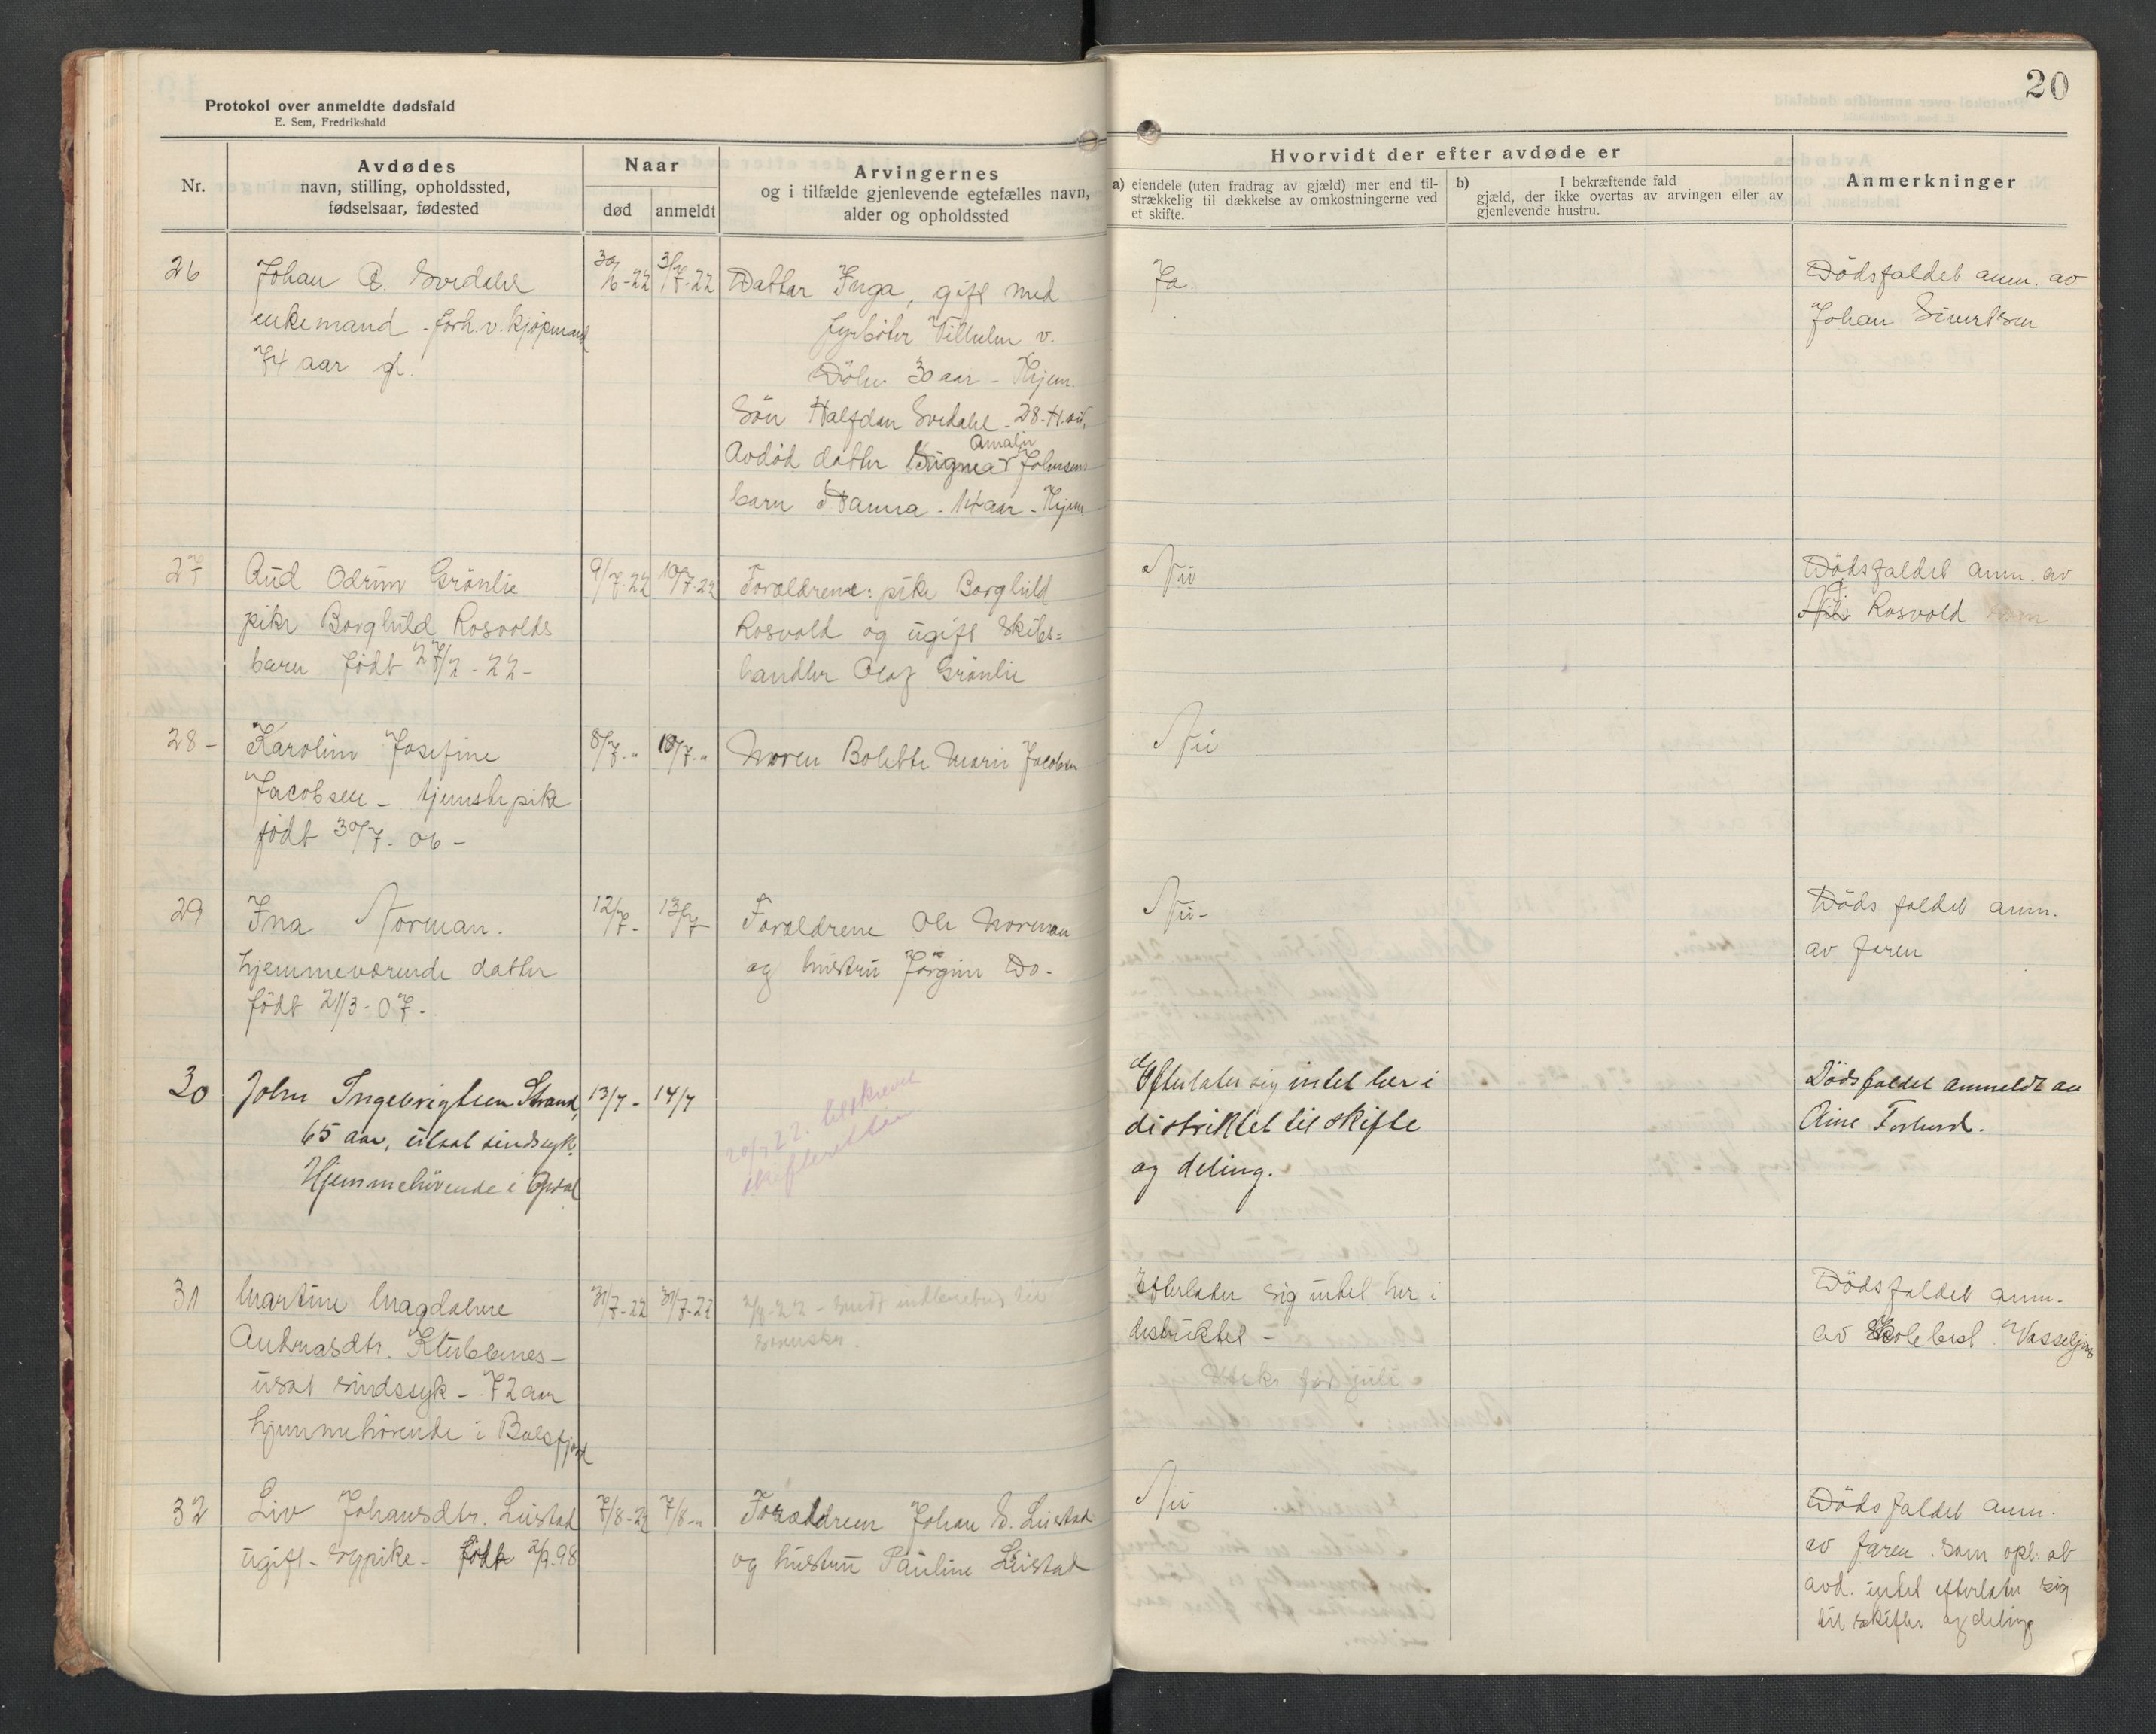 Protokol over anmeldte dødsfald
E. Sem, Fredrikshald
20
Nr.
Avdødes
navn, stilling, opholdssted,
fødselsaar, fødested
Naar
død
anmeldt
Arvingernes
og i tilfælde gjenlevende egtefælles navn,
alder og opholdssted
Hvorvidt der efter avdøde er
a) eiendele (uten fradrag av gjæld) mer end til-
strækkelig til dækkelse av omkostningerne ved
et skifte.
b) I bekræftende fald
gjæld, der ikke overtas av arvingen eller av
gjenlevende hustru.
Anmerkninger
26
Johan E. Svedahl
enkemand - forh.v. kjøpmand
74 aar gl.
30/6-22
31/7-22
Datter Inga, gift med
fyrbøter Vilhelm v.
Døhn 30 aar - Hjem.
Søn Halfdan Svedahl - 28 -
Avdød datter Signea Amalie Johnsens
barn Hanna - 14 aar - Hjem
Ja
Dödsfaldet anm. av
Johan Sivertsen
27
Aud Odrun Grönlie
pike Borghild Rosvolds
barn født 27/2 - 22 -
9/7-22
10/7-22
Foraldrene: pike Borghild
Rosvold og ugift skibs=
handler Olaf Grönlie
Nei
Dødsfaldet anm. av
Rosvold
28 -
Karoline Josefine
Jacobsen - tjenestepike
født 30/7 - 06 -
8/7 - "
10/7 - "
Moren Bolette Marie Jacobsen
Nei
29
Ina Norman.
hjemmeværende datter
født 21/3 - 07 -
12/7 -
13/7
Foraldrene Ole Norman
og hustru Jörgine Do -
Nei -
Döds faldet anm.
av faren
30
John Ingebrigtsen Strand,
65 aar, utsat sindssyk.
Hjemmehörende i Opdal
13/7 -
14/7
20/7 22. beskrevet
skifteretten
Efterlater sig intet her i
distriktet til skifte
og deling.
Dödsfaldet anmeldt av
Aine
31
Martine Magdalene
Andreasdtr. Klubbenes -
usat sindssyk - 72 aar
hjemmehörende i Balsfjord
31/7-22
31/7-22
2/8-22 - sendt
Efterlater sig intet her i
distriktet -
Dödsfaldet anm.
av Skolebest. Vasseljens
32
Liv Johansdtr. Leistad
ugift - sypike - født 2/9 98
7/8-22
7/8 - "
Foraldrene Johan E. Leistad
og hustru Pauline Leistad
Nei
Dödsfaldet anm.
av faren. Som opl. at
avd. intet efterlater sig
til skifte og deling